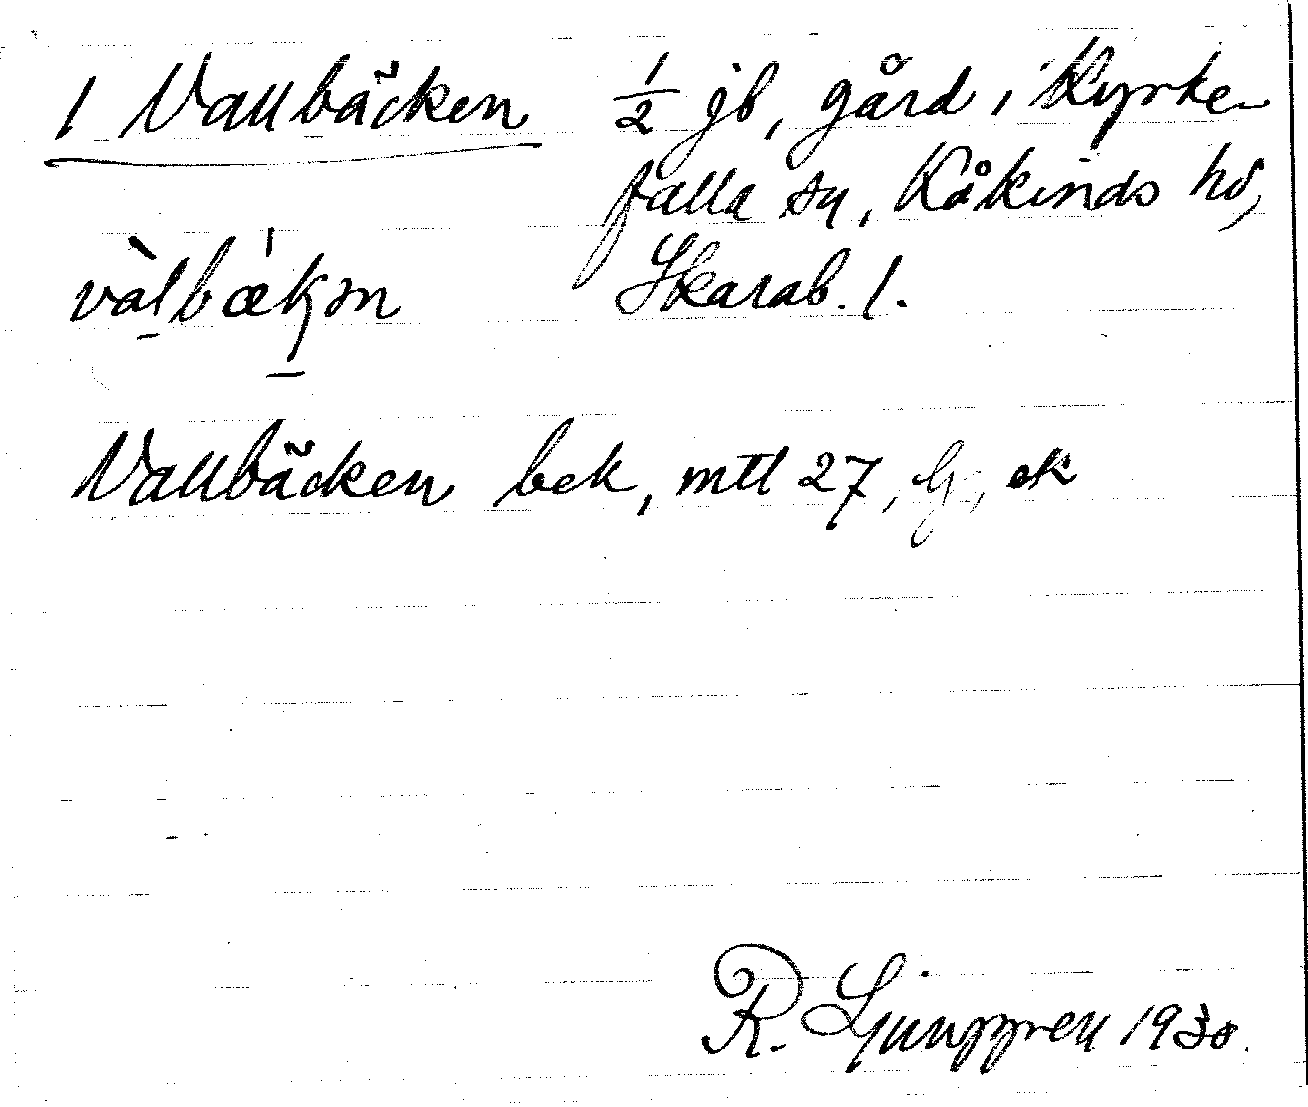 1 Vallbäcken ½ jb, gård i Kyrke-
falla sn, Kåkinds hd,
Skarab. l.
vàlbækən
Vallbäcken bek, mtl 27, G, ek
R. Ljunggren 1930.